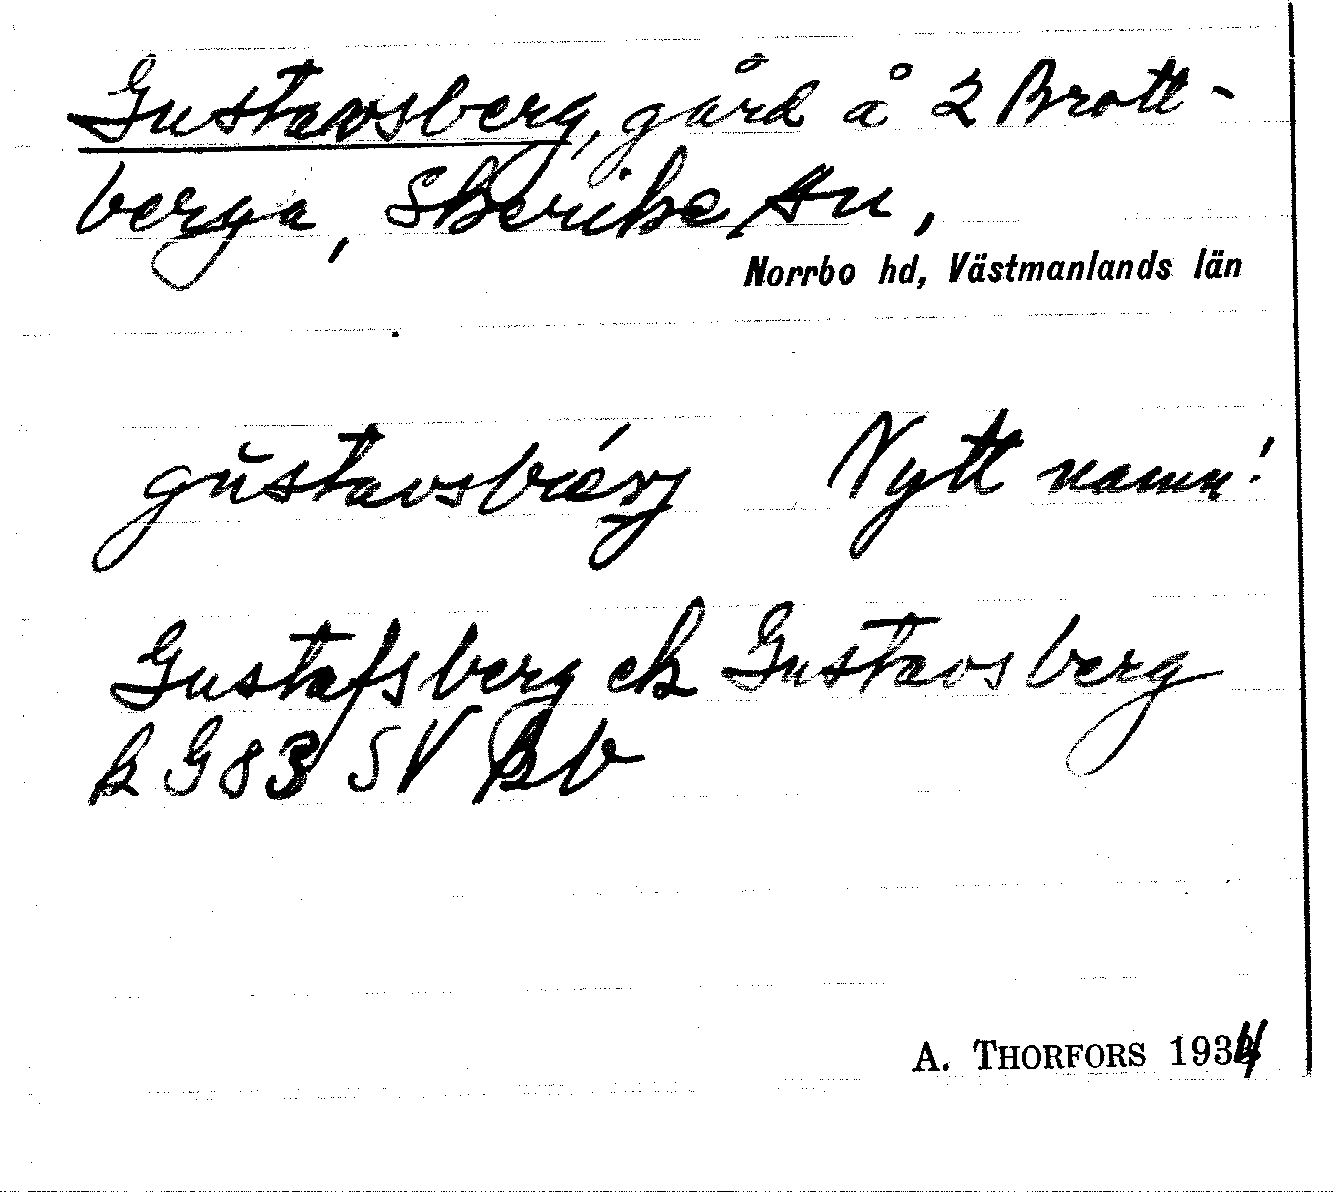 Gustavsberg, gård å 2 Brott-
berga, Skerike sn,
Norrbo hd, Västmanlands län
gŭstavsbærj Nytt namn!
Gustafsberg ek Gustavsberg
k G 83 SV kv
A. THORFORS 1934